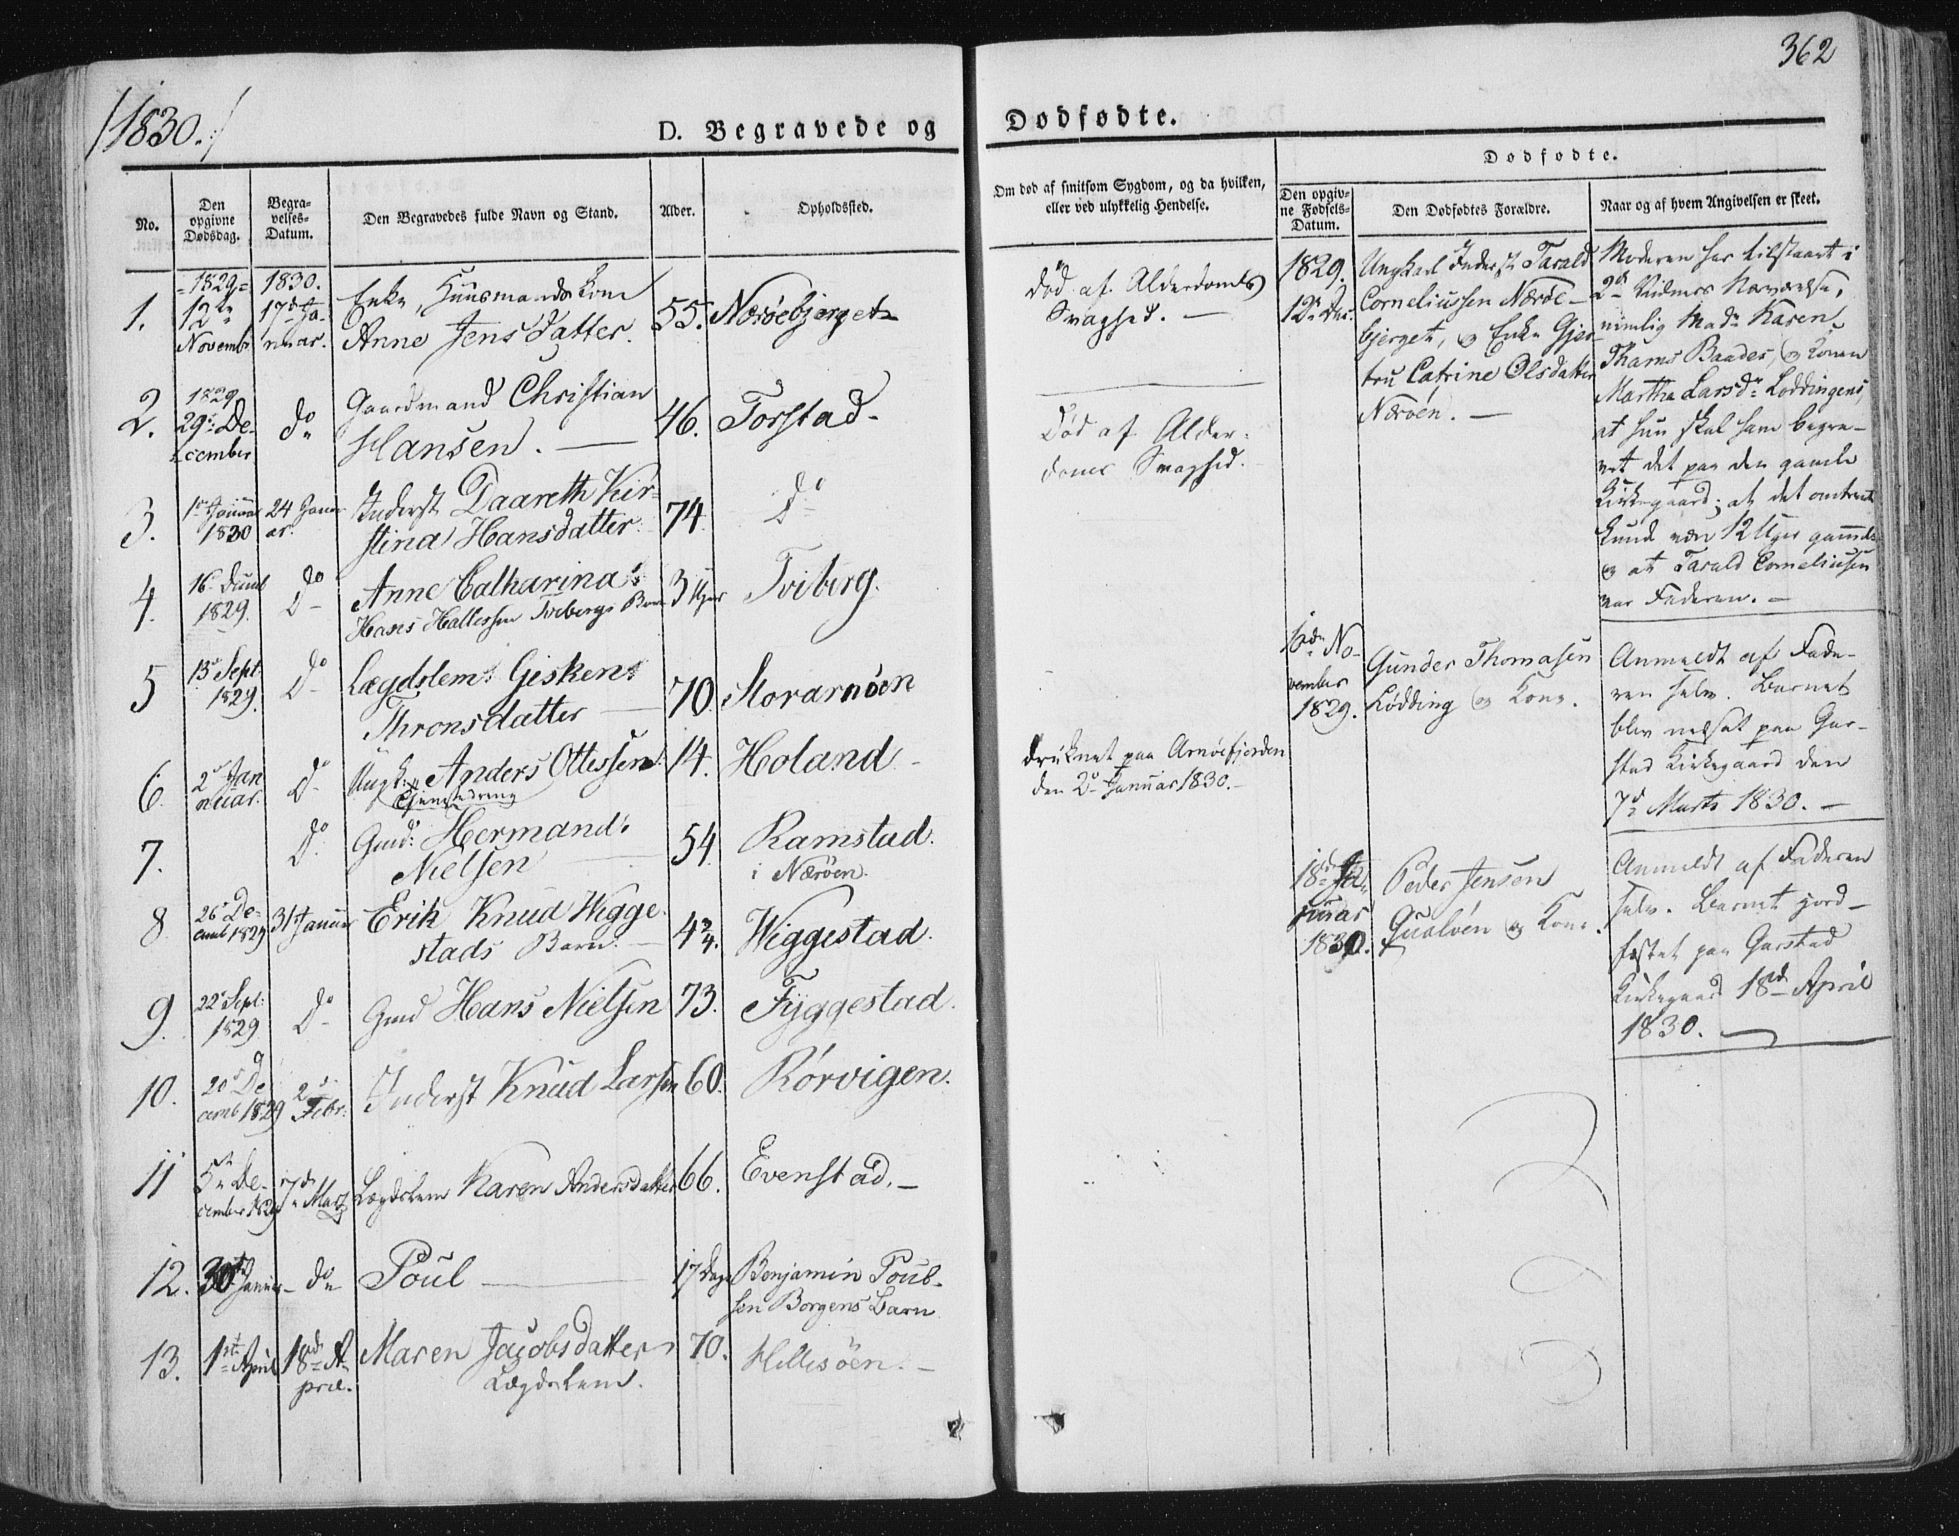 362
/1830./
D. Begravede og Dødfødte.
No.
Den opgivne Dødsdag.
Begravelses-Datum.
Den Begravedes fulde Navn og Stand.
Alder.
Opholdssted.
Om død af smitsom Sygdom, og da hvilken,
eller ved ulykkelig Hendelse.
Dødfødte.
Den opgivne Fødsels-Datum.
Den Dødfødtes Forældre.
Naar og af hvem Angivelsen er skeet.
1. 1829 12te Novembr 1830. 17de Januar. Enke, Huusmandskone
Anne Jensdatter. 55. Nærøebjerget
Død af Alderdoms
Svaghed. —
2. 1829 29de December do Gaardmand Christian
Hansen. — 46. Torstad
Død af Alder-
doms Svaghed.
3. 1ste Januar 1830 24 Januar. Inderst Daareth Kir-
stina Hansdatter. 74. do
4. 16 Decemb 1829. do Anne Catharina
Hans Hallessen Tviberg Barn 3 Uger Tviberg.
5 13de Sept 1829. do Lægdslem: Gisken
Thronsdatter — 70. Storarnøen
6. 2de Januar. do Ungk: Anders Ottessen 14. Holand
drüknet paa Arnøefjorden
den 2de Januar 1830. —
7. do Gmd: Hermand
Nielsen 54. Ramstad.
i Nærøen.
8 26de December 1829 31te Januar Erik Knud Wigge-
stads Barn. — 4 3/4. Wiggestad.
9. 22de Sept: 1829 do Gmd Hans Nielsen 73. Fyggestad.
10. 20de Decemb 1829 2de Febr: Inderst Knud Larsen 60. Rørvigen.
11 5te December 1829 7de Marz Lægdslem Karen Andersdatter 66. Evenstad. —
12. 30te Januar do Poul — 17 Dage Benjamin Pouls-
sen Borgens Barn
13. 1ste April 18de April. Maren Jacobsdatter
Lægdslem. 70. Hillesøen. —
1829. 12te Dec.
Ungkarl Inderst Tarald
Corneliussen Nærøe-
bjerget, og Enke Gjer-
tru Catrine Olsdatter
Nærøen. —
Moderen har tilstaaet i
2de Vidners Nærværelse,
nemlig Mad: Karen
Thams Baades, og Konen
Martha Larsdr Løddingens,
at hun skal have begra-
vet det paa den gamle
Kirkegaard; at det omtrent
kund være 12 Uger gammelt
og at Tarald Corneliusen
var Faderen. —
6de November 1829.
Gunder Thomasen
Lødding og Kone.
Anmeldt af Fade-
ren selv. Barnet
blev nedsat paa Gar-
stad Kirkegaard den
7de Marts 1830. —
18de Januar 1830.
Peder Jensen
og Kone.
Anmeldt af Faderen
selv. Barnet jord-
fæstet paa Garstad
Kirkegaard 18de April
1830. —